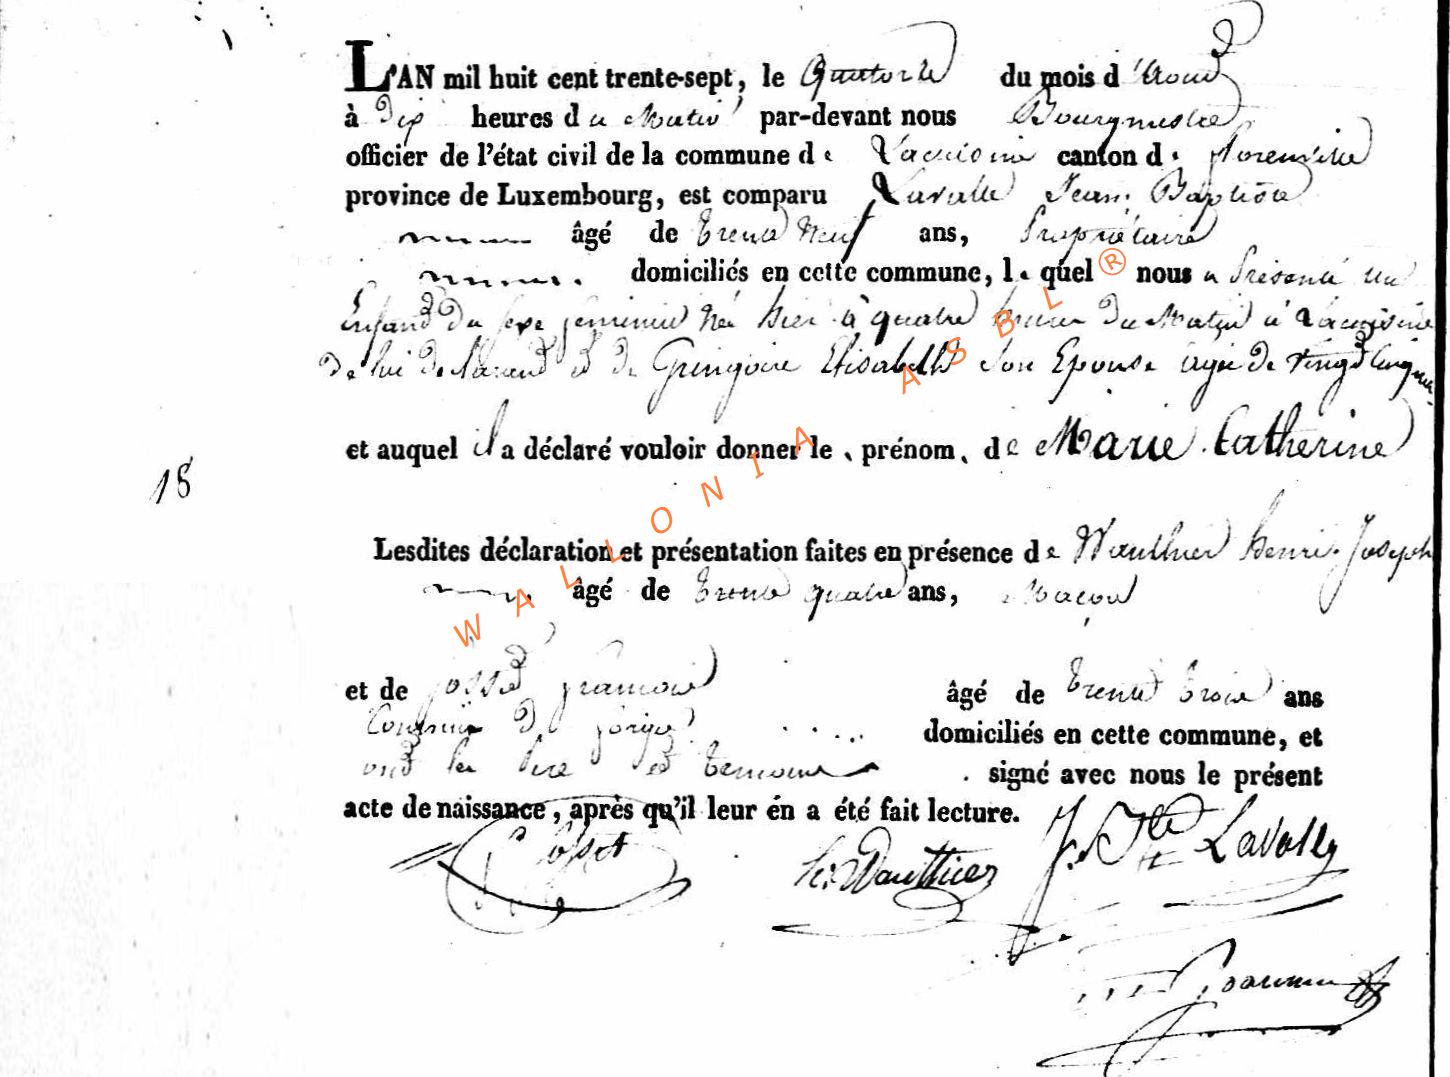 L'AN mil huit cent trente-sept, le Quatorze du mois d'Aout
à Dix heures du Matin par-devant nous Bourgmestre
officier de l'état civil de la commune de Lacuisine canton de florenville
province de Luxembourg, est comparu Lavalle Jean Baptiste
âgé de trente Neuf ans, Propriétaire
domiciliés en cette commune, lequel nous a Présenté un
Enfant Du sexe feminin Né hier à quatre heures Du Matin à Lacuisine
De lui declarant et De Gringoire Elisabeth Son Epouse agée De vingt cinq
18
et auquel il a déclaré vouloir donner le prénom de Marie Catherine
Lesdites déclaration et présentation faites en présence de Wauthier henri Joseph
âgé de trente quatre ans, Maçon
et de josset françois âgé de trente trois ans
Commis De forge domiciliés en cette commune, et
ont les et temoins signé avec nous le présent
acte de naissance, après qu'il leur én a été fait lecture.
f josset h: Wauthier J. Bte Lavally
WALLONIA ASBL ®